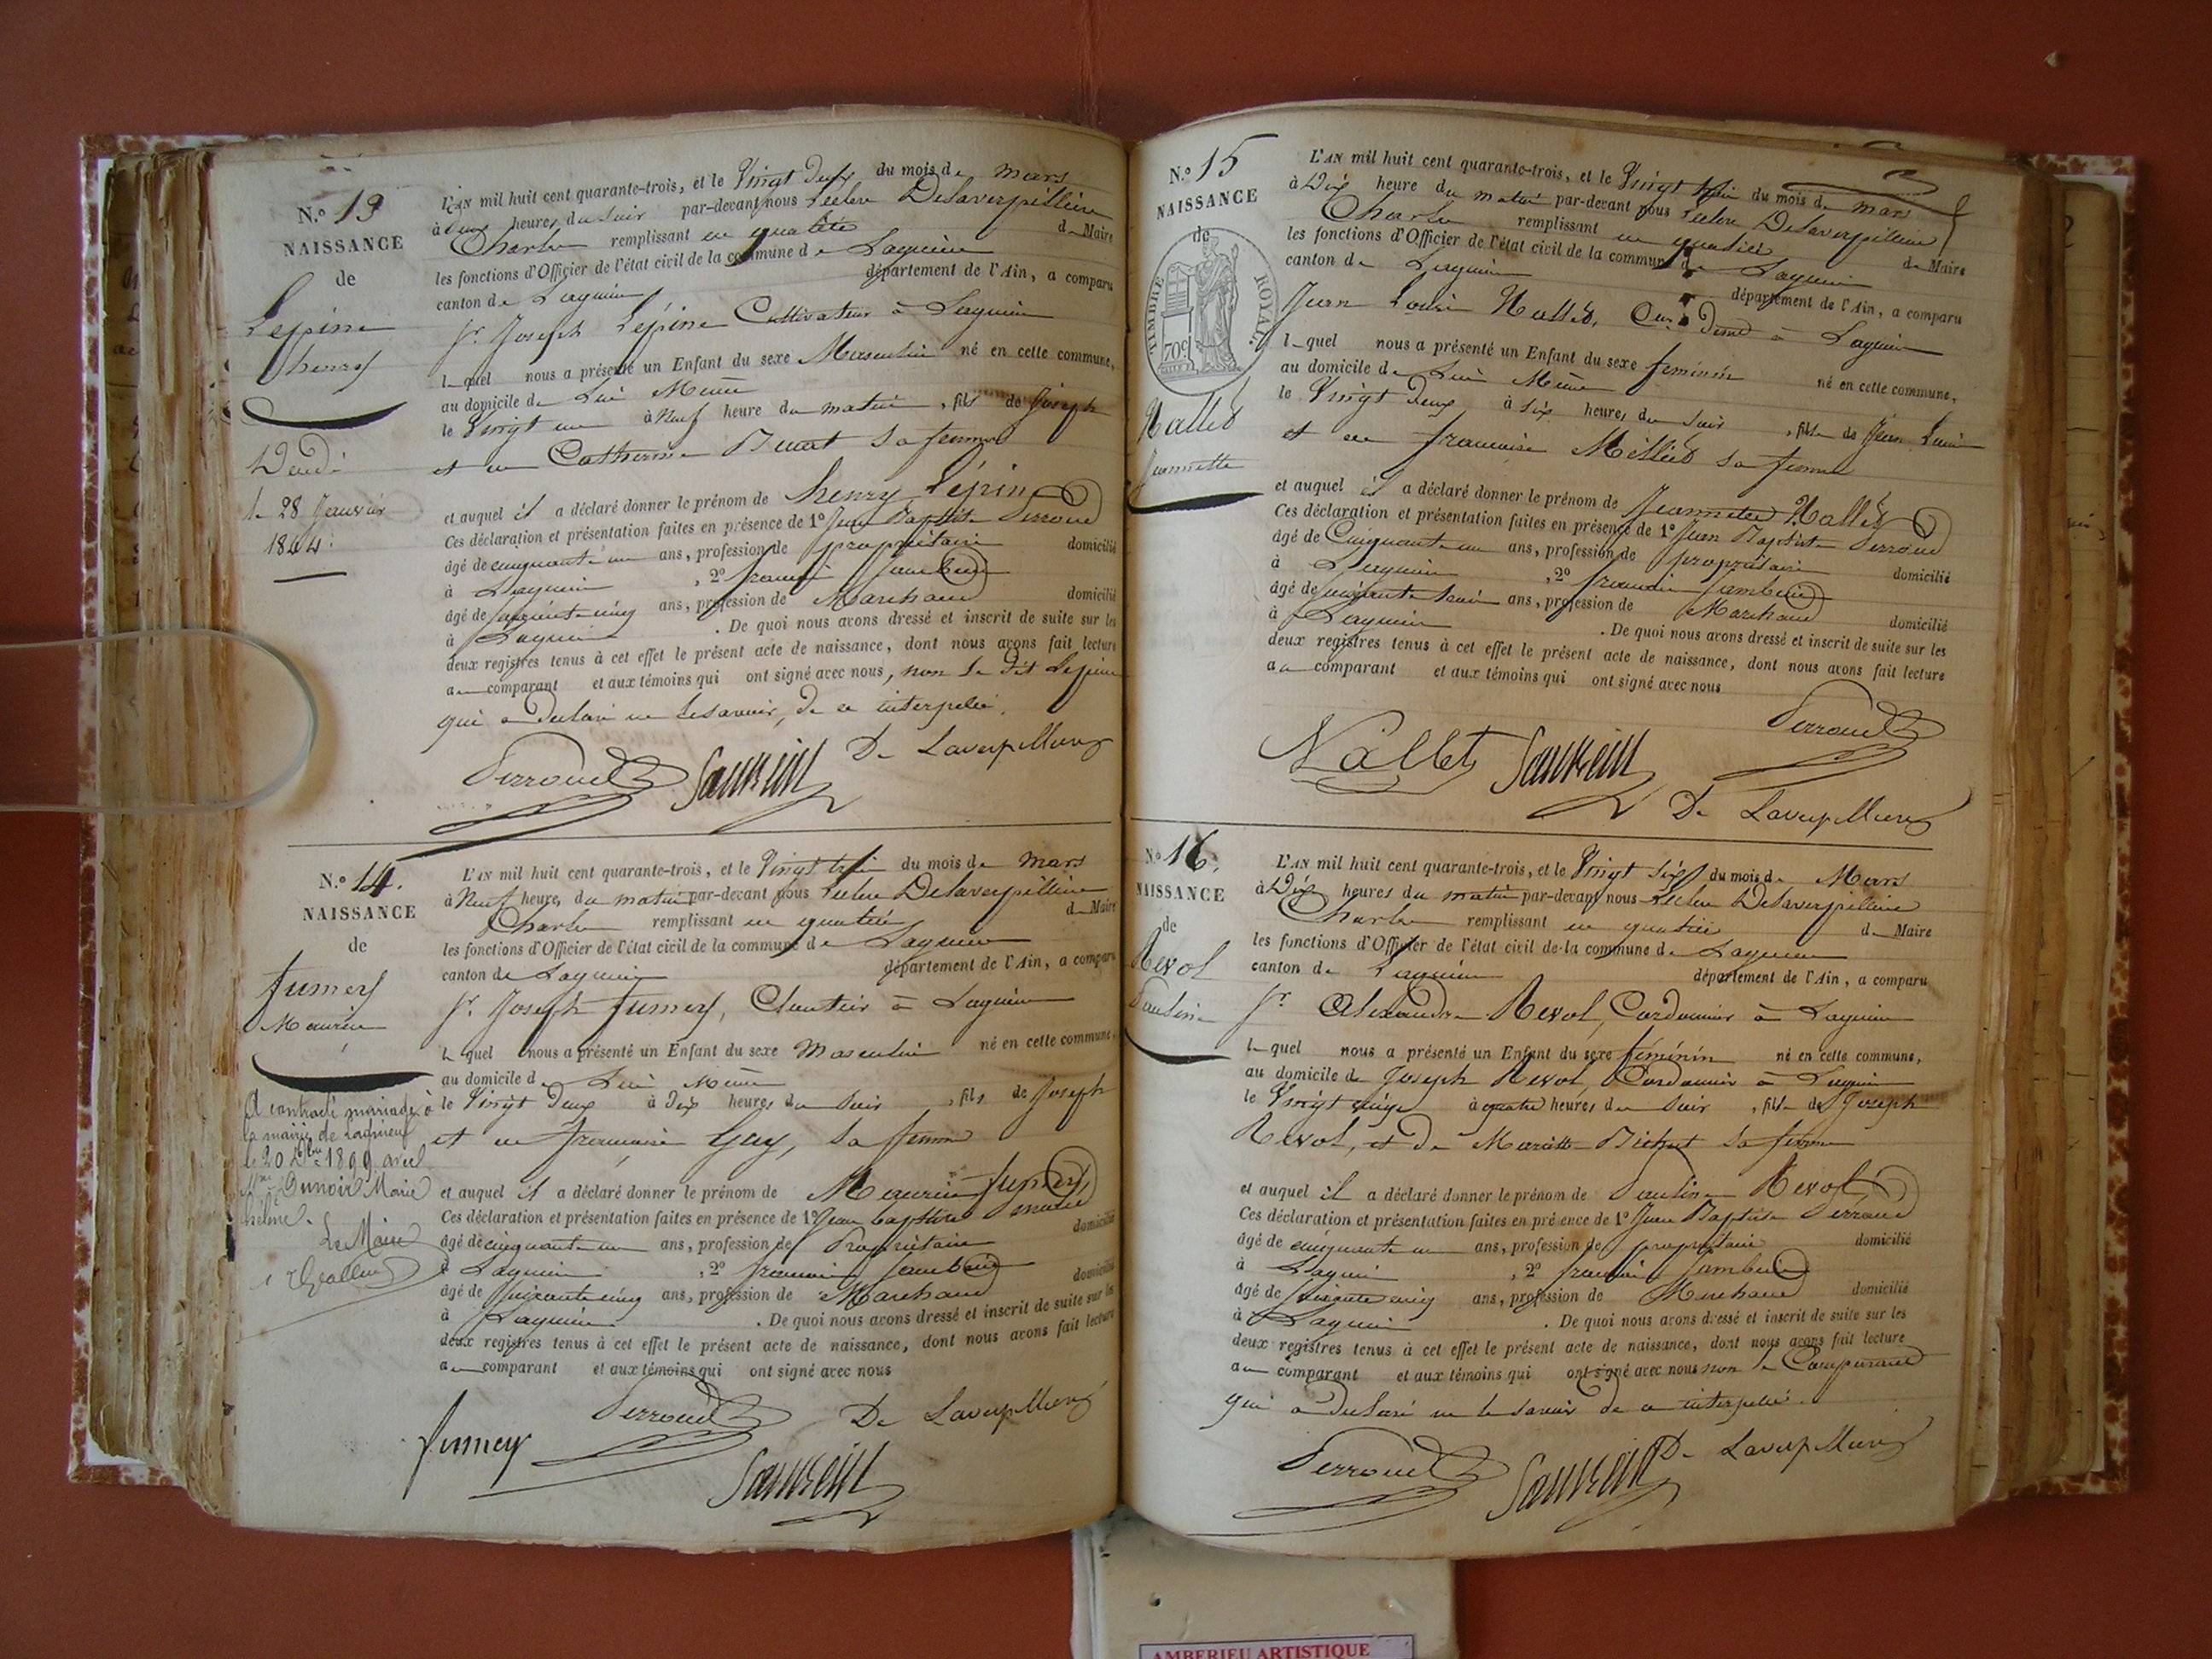 N.o 13
NAISSANCE
de
Lépine
henry
Décédé
le 28 Janvier
1844.
L'AN mil huit cent quarante-trois, et le Vingt Deux du mois de mars
à heures du soir par-devant nous Delaverpillière
Charles remplissant en qualité de Maire
les fonctions d'Officier de l'état civil de la commune de Lagnieu
canton de Lagnieu département de l'Ain, a comparu
Sr. Joseph Lépine Cultivateur à Lagnieu
lequel nous a présenté un Enfant du sexe Masculin né en cette commune,
au domicile de Lui Même
le Vingt un à Neuf heure du matin, fils de Joseph
et de Catherine sa femme
et auquel il a déclaré donner le prénom de henry Lépine
Ces déclaration et présentation faites en présence de 1o Jean Baptiste Perroud
âgé de cinquante un ans, profession de propriétaire domicilié
à Lagnieu, 2o françois
âgé de soixante cinq ans, profession de Marchand domicilié
à Lagnieu. De quoi nous avons dressé et inscrit de suite sur les
deux registres tenus à cet effet le présent acte de naissance, dont nous avons fait lecture
au comparant et aux témoins qui ont signé avec nous, non le dit Lépine
qui a déclaré ne le savoir, de ce interpellé.
Perroud De Laverpillière
N.o 14.
NAISSANCE
de
fumey
Maurice
A contracté mariage à
la mairie de Lagnieu
le 20 1899 avec
Dunoir Marie
hélène.
Le Maire
L'AN mil huit cent quarante-trois, et le Vingt trois du mois de mars
à Neuf heures du matin par-devant nous Delaverpillière
Charles remplissant en qualité de Maire
les fonctions d'Officier de l'état civil de la commune de Lagnieu
canton de Lagnieu département de l'Ain, a comparu
Sr. Joseph fumey, à Lagnieu
lequel nous a présenté un Enfant du sexe Masculin né en cette commune,
au domicile de Lui Même
le Vingt Deux à Dix heures du soir, fils de Joseph
et de françoise Guy, sa femme
et auquel il a déclaré donner le prénom de Maurice fumey
Ces déclaration et présentation faites en présence de 1o Jean baptiste
âgé de cinquante un ans, profession de Propriétaire domicilié
à Lagnieu, 2o françois
âgé de soixante cinq ans, profession de Marchand domicilié
à Lagnieu. De quoi nous avons dressé et inscrit de suite sur les
deux registres tenus à cet effet le présent acte de naissance, dont nous avons fait lecture
au comparant et aux témoins qui ont signé avec nous
fumey Perroud De Laverpillière
N.o 15
NAISSANCE
de
TIMBRE ROYAL
70c
Nallet
Jeannette
L'AN mil huit cent quarante-trois, et le Vingt trois du mois de mars
à Dix heure du matin par-devant nous Delaverpillière
Charles remplissant en qualité de Maire
les fonctions d'Officier de l'état civil de la commune de Lagnieu
canton de Lagnieu département de l'Ain, a comparu
Jean Louis Nallet, à Lagnieu
lequel nous a présenté un Enfant du sexe féminin né en cette commune,
au domicile de Lui Même
le Vingt Deux à six heures du soir, fille de Jean Louis
et de françoise Milliet sa femme
et auquel il a déclaré donner le prénom de Jeannette Nallet
Ces déclaration et présentation faites en présence de 1o Jean Baptiste Perroud
âgé de Cinquante un ans, profession de propriétaire domicilié
à Lagnieu, 2o françois
âgé de ans, profession de Marchand domicilié
à Lagnieu. De quoi nous avons dressé et inscrit de suite sur les
deux registres tenus à cet effet le présent acte de naissance, dont nous avons fait lecture
au comparant et aux témoins qui ont signé avec nous
Perroud
Nallet
De Laverpillière
N.o 16.
NAISSANCE
de
Revol
Pauline
L'AN mil huit cent quarante-trois, et le Vingt six du mois de Mars
à Dix heures du matin par-devant nous Delaverpillière
Charles remplissant en qualité de Maire
les fonctions d'Officier de l'état civil de la commune de Lagnieu
canton de Lagnieu département de l'Ain, a comparu
Sr. Alexandre Revol, Cordonnier à Lagnieu
lequel nous a présenté un Enfant du sexe féminin né en cette commune,
au domicile de Joseph Revol, Cordonnier à Lagnieu
le Vingt cinq à quatre heures du soir, fille de Joseph
Revol, et de Mariette sa femme
et auquel il a déclaré donner le prénom de Pauline Revol
Ces déclaration et présentation faites en présence de 1o Jean Baptiste Perroud
âgé de cinquante un ans, profession de propriétaire domicilié
à Lagnieu, 2o françois
âgé de soixante cinq ans, profession de Marchand domicilié
à Lagnieu. De quoi nous avons dressé et inscrit de suite sur les
deux registres tenus à cet effet le présent acte de naissance, dont nous avons fait lecture
au comparant et aux témoins qui ont signé avec nous non le Comparant
qui a déclaré ne le savoir de ce interpellé.
Perroud De Laverpillière
AMBERIEU ARTISTIQUE